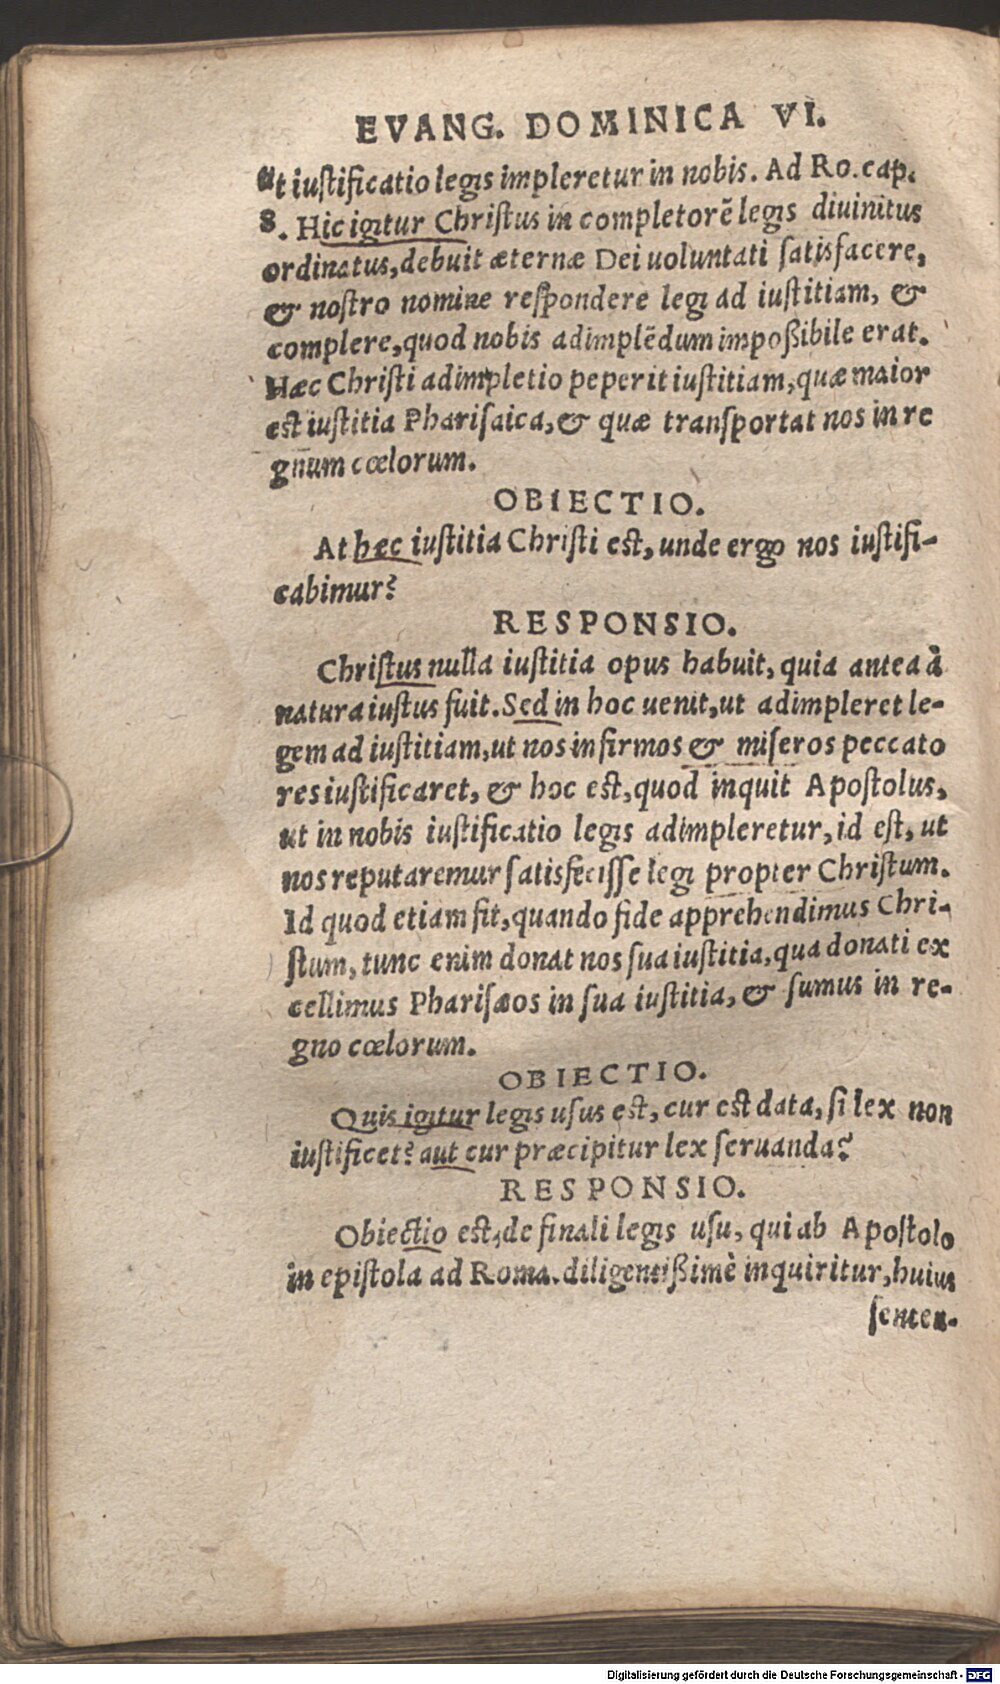 EVANG. DOMINICA VI.
ut iustificatio legis impleretur in nobis. Ad Ro. cap.
8. Hic igitur Christus in completorē legis diuinitus
ordinatus, debuit æternæ Dei uoluntati satisfacere,
& nostro nomine respondere legi ad iustitiam, &
complere, quod nobis adimplēdum impoßibile erat.
Hæc Christi adimpletio peperit iustitiam, quæ maior
est iustitia Pharisaica, & quæ transportat nos in re
gnum cœlorum.
OBIECTIO.
At hæc iustitia Christi est, unde ergo nos iustifi-
cabimur?
RESPONSIO.
Christus nulla iustitia opus habuit, quia antea à
natura iustus fuit. Sed in hoc uenit, ut adimpleret le-
gem ad iustitiam, ut nos infirmos & miseros peccato
res iustificaret, & hoc est, quod inquit Apostolus,
ut in nobis iustificatio legis adimpleretur, id est, ut
nos reputaremur satisfecisse legi propter Christum.
Id quod etiam fit, quando fide apprehendimus Chri-
stum, tunc enim donat nos sua iustitia, qua donati ex
cellimus Pharisæos in sua iustitia, & sumus in re-
gno cœlorum.
OBIECTIO.
Quis igitur legis usus est, cur est data, si lex non
iustificet? aut cur præcipitur lex seruanda?
RESPONSIO.
Obiectio est, de finali legis usu, qui ab Apostolo
in epistola ad Roma. diligentißimè inquiritur, huius
senten-
Digitalisierung gefördert durch die Deutsche Forschungsgemeinschaft - DFG